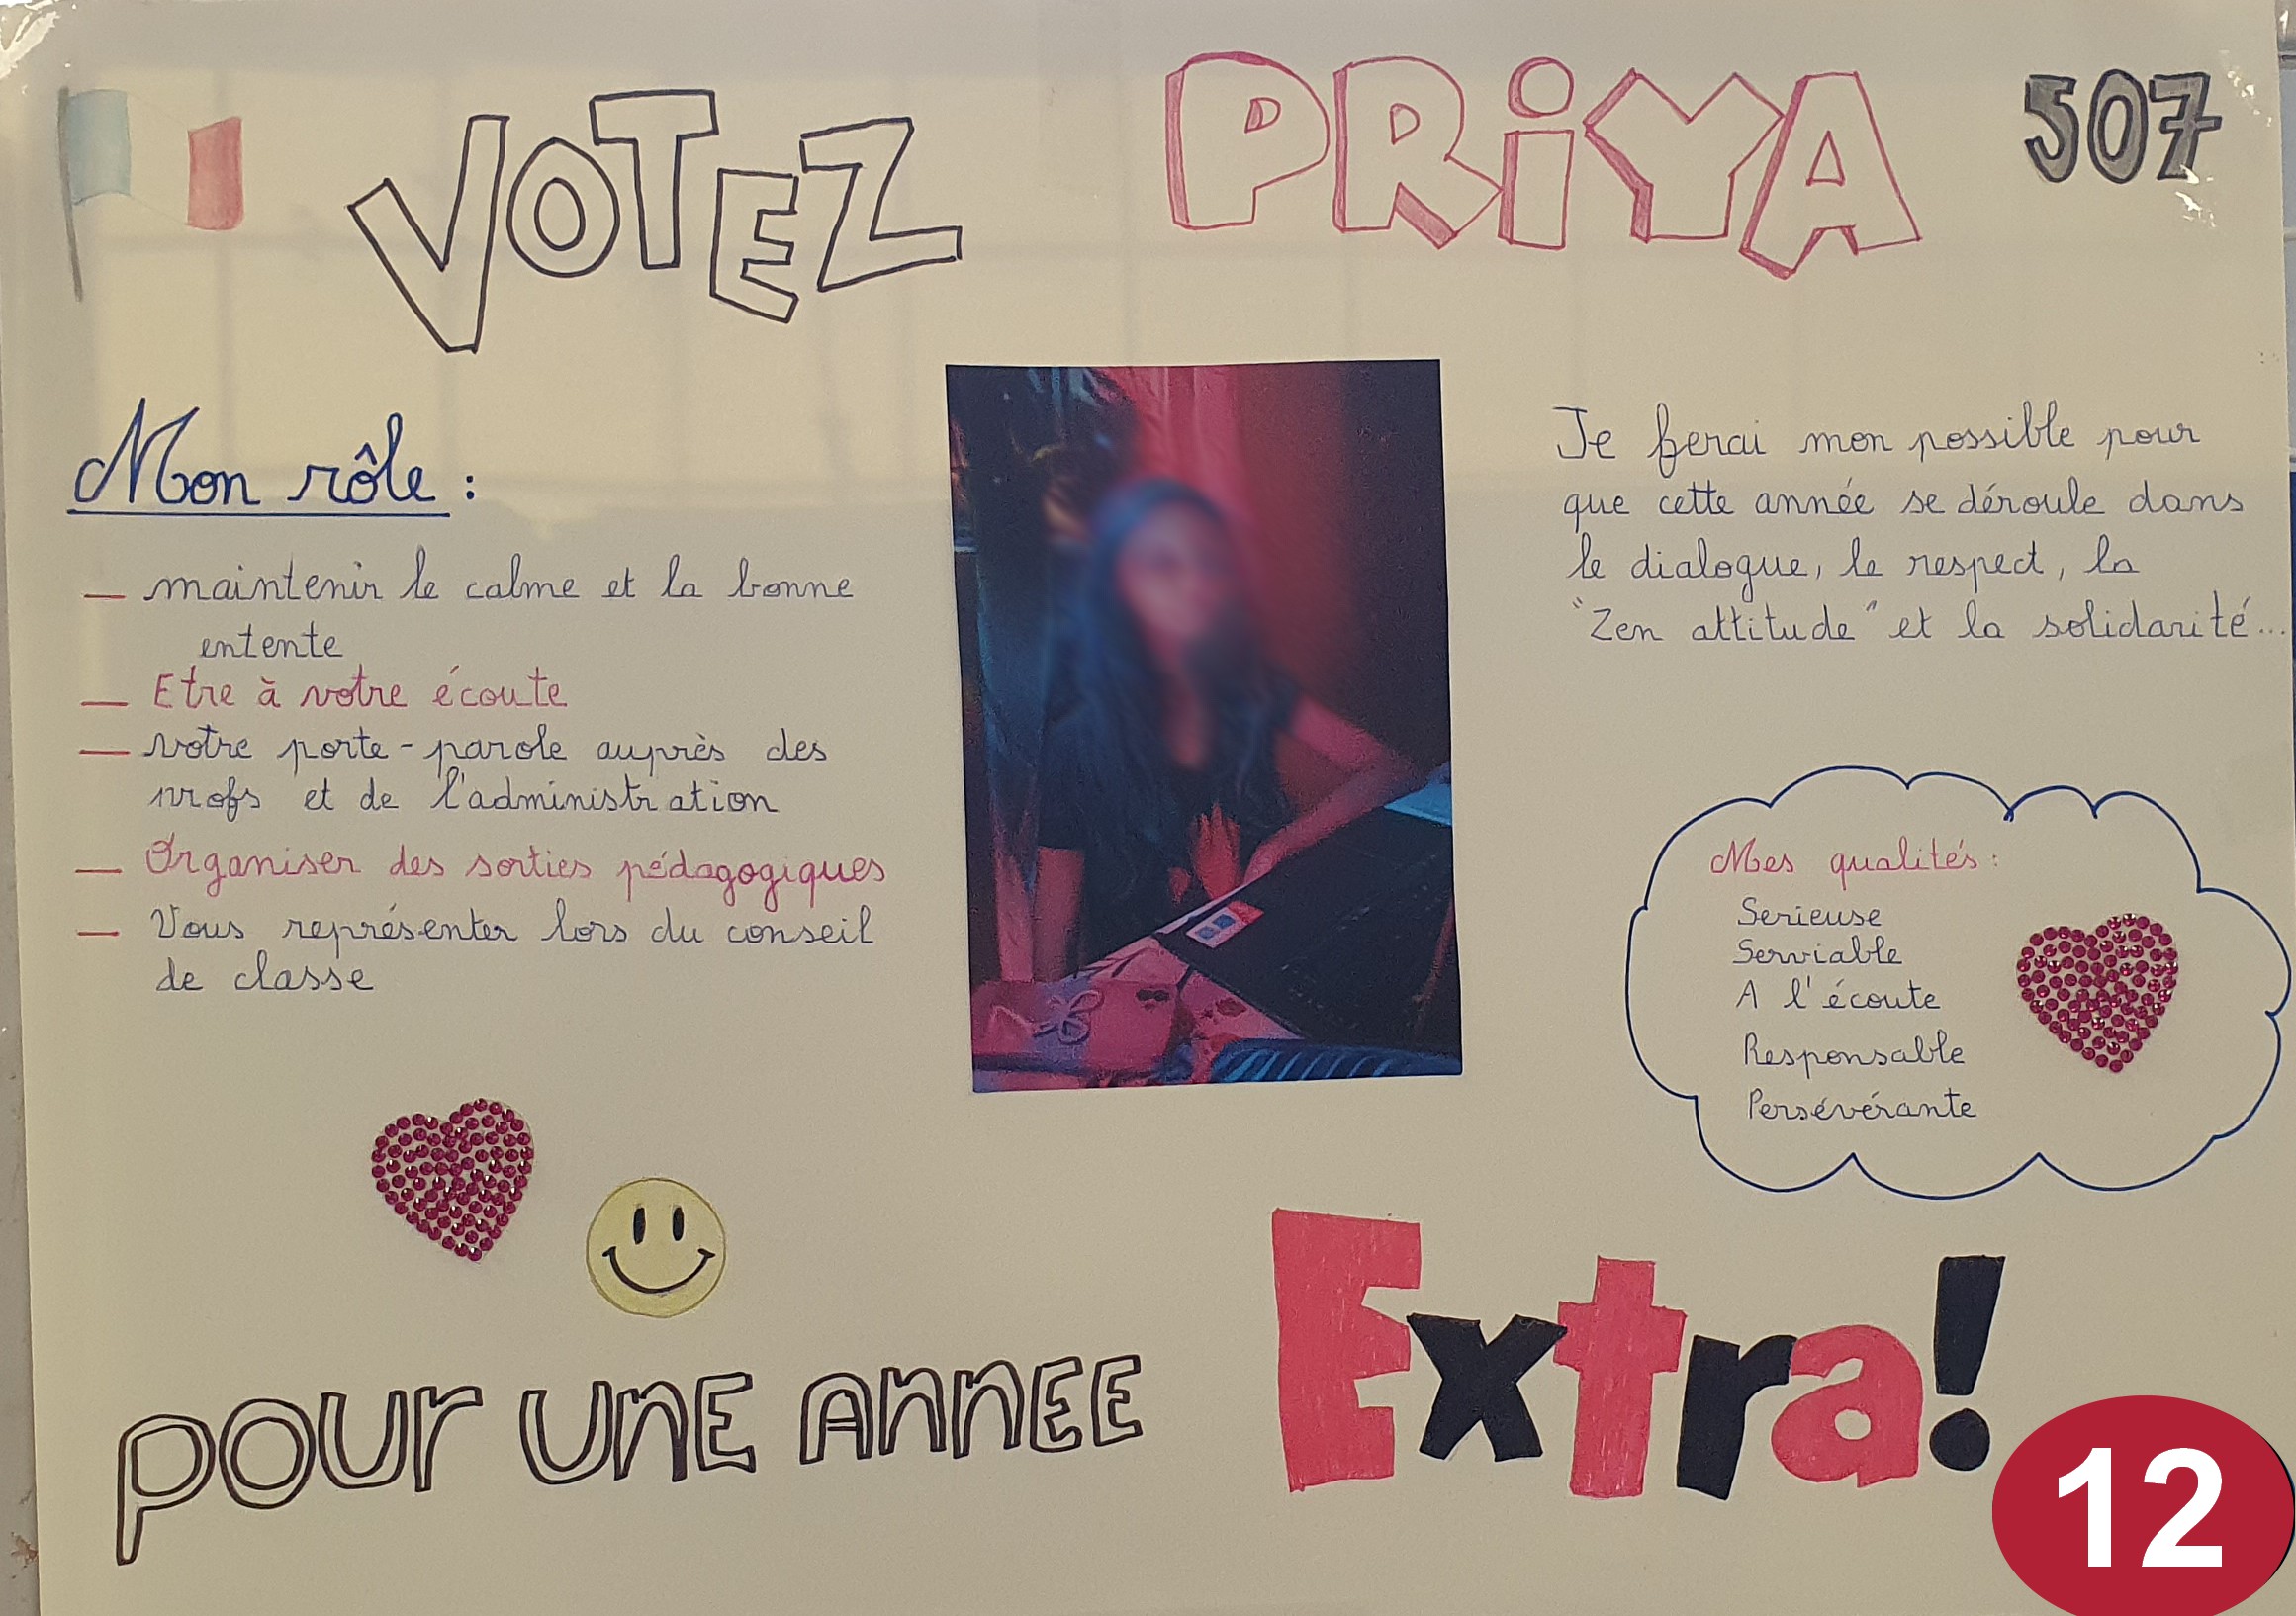 VOTEZ PRiYA 507
Mon rôle :
— maintenir le calme et la bonne
entente
— Etre à votre écoute
— votre porte-parole auprès des
profs et de l'administration
— Organiser des sorties pédagogiques
— Vous représenter lors du conseil
de classe
Je ferai mon possible pour
que cette année se déroule dans
le dialogue, le respect, la
"Zen attitude" et la solidarité...
Mes qualités :
Serieuse
Serviable
A l'écoute
Responsable
Persévérante
POUr UnE AnnEE Extra!
12